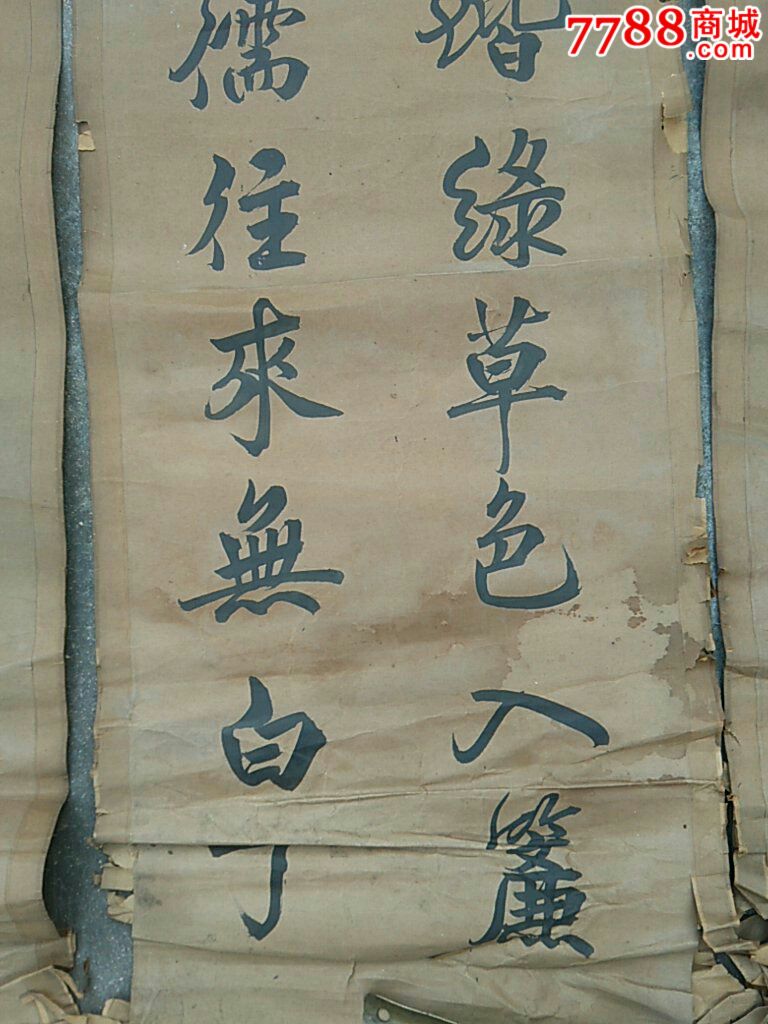 7788商城
.com
綠草色入簾
儒往來無白丁